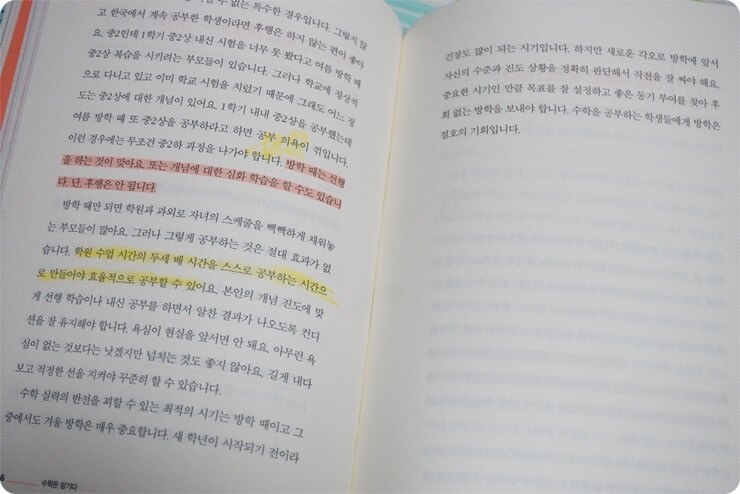 할 수 없는 특수한 경우입니다. 그렇지 않
고 한국에서 계속 공부한 학생이라면 후행은 하지 않는 편이 좋아
요. 중2인데 1학기 중2상 내신 시험을 너무 못 봤다고 여름 방학 때
중2상 복습을 시키려는 부모들이 있습니다. 그러나 학교에 정상적
으로 다니고 있고 이미 학교 시험을 치렀기 때문에 그래도 어느 정
도는 중2상에 대한 개념이 있어요. 1학기 내내 중2상을 공부했는데
여름 방학 때 또 중2상을 공부하라고 하면 공부 의욕이 꺾입니다.
이런 경우에는 무조건 중2하 과정을 나가야 합니다. 방학 때는 선행
을 하는 것이 맞아요. 또는 개념에 대한 심화 학습을 할 수도 있습니
다. 단, 후행은 안 됩니다.
방학 때만 되면 학원과 과외로 자녀의 스케줄을 빽빽하게 채워놓
는 부모들이 많아요. 그러나 그렇게 공부하는 것은 절대 효과가 없
습니다. 학원 수업 시간의 두세 배 시간을 스스로 공부하는 시간으
로 만들어야 효율적으로 공부할 수 있어요. 본인의 개념 진도에 맞
게 선행 학습이나 내신 공부를 하면서 알찬 결과가 나오도록 컨디
션을 잘 유지해야 합니다. 욕심이 현실을 앞서면 안 돼요. 아무런 욕
심이 없는 것보다는 낫겠지만 넘치는 것도 좋지 않아요. 길게 내다
보고 적정한 선을 지켜야 꾸준히 할 수 있습니다.
수학 실력의 반전을 꾀할 수 있는 최적의 시기는 방학 때이고 그
중에서도 겨울 방학은 매우 중요합니다. 새 학년이 시작되기 전이라
6
수학은 암기다
긴장도 많이 되는 시기입니다. 하지만 새로운 각오로 방학에 앞서
자신의 수준과 진도 상황을 정확히 판단해서 작전을 잘 짜야 해요.
중요한 시기인 만큼 목표를 잘 설정하고 좋은 동기 부여를 찾아 후
회 없는 방학을 보내야 합니다. 수학을 공부하는 학생들에게 방학은
절호의 기회입니다.